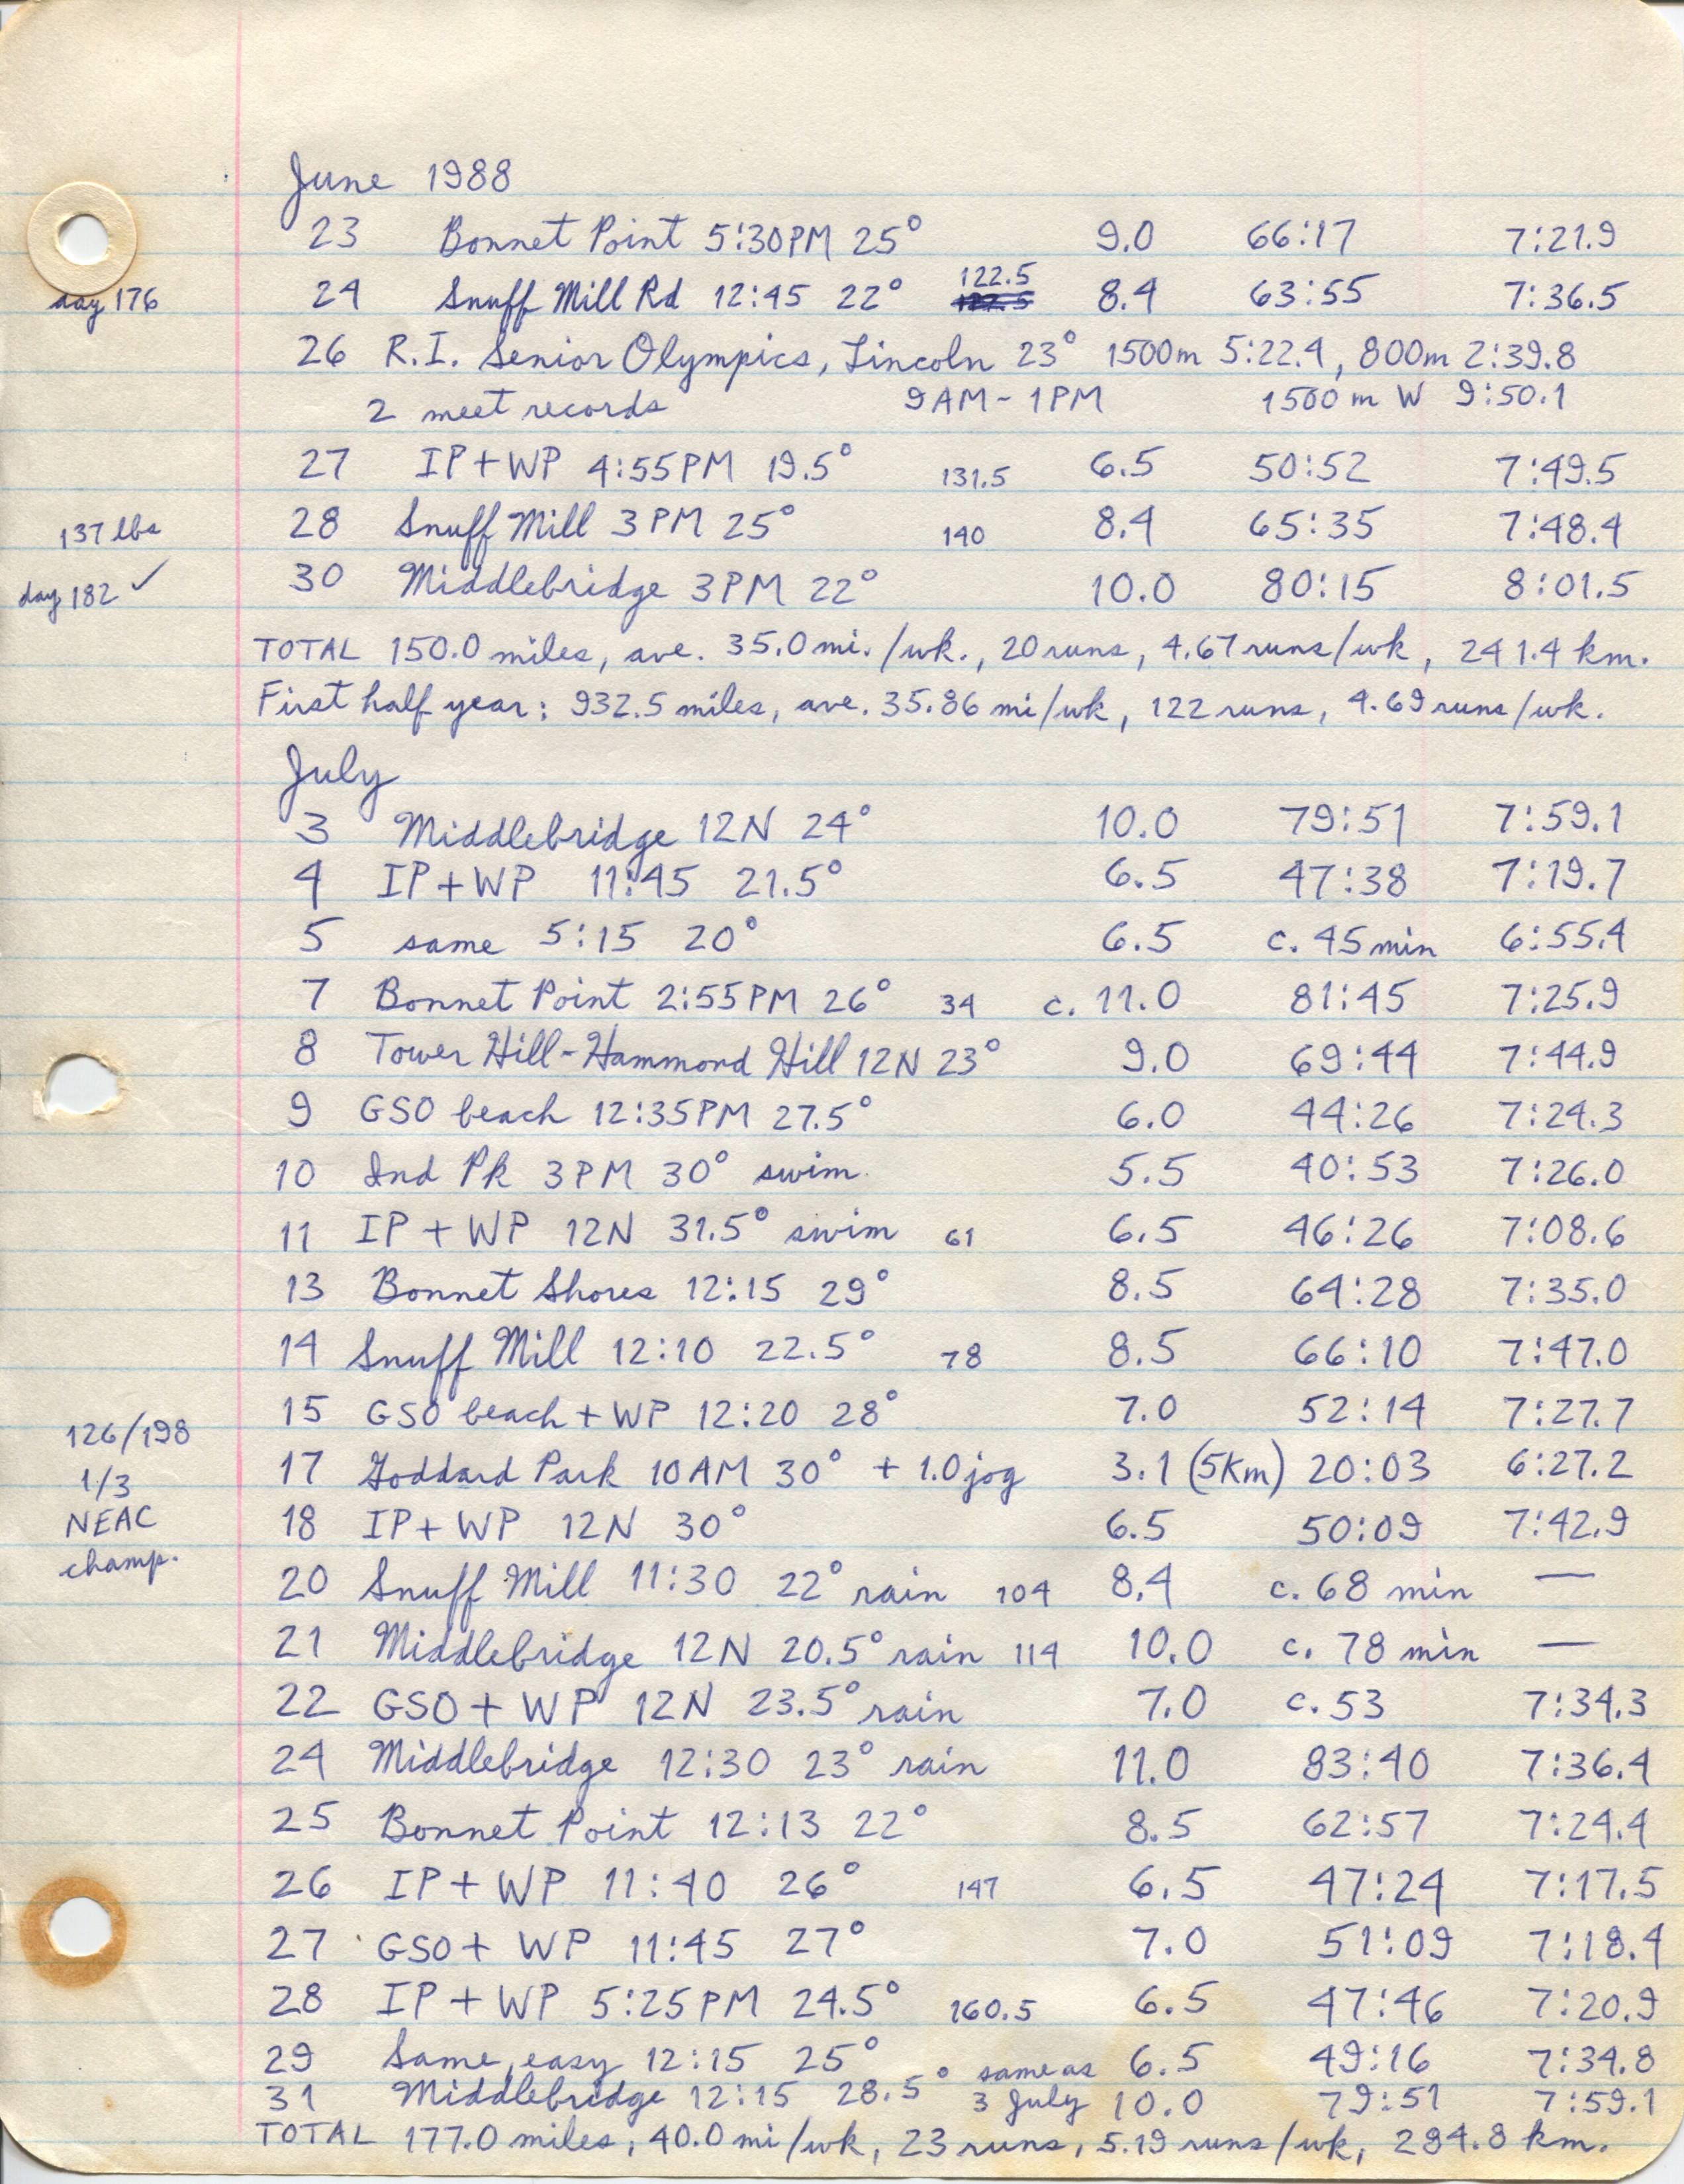 June 1988
23 Bonnet Point 5:30PM 25° 9.0 66:17 7:21.9
122.5
day 176 24 Snuff Mill Rd 12:45 22° 122.5 8.4 63:55 7:36.5
26 R.I. Senior Olympics, Lincoln 23° 1500m 5:22.4, 800m 2:39.8
2 meet records 9AM-1PM 1500m W 9:50.1
27 IP+WP 4:55PM 19.5° 131.5 6.5 50:52 7:49.5
137 lbs 28 Snuff Mill 3PM 25° 140 8.4 65:35 7:48.4
day 182 ✓ 30 Middlebridge 3PM 22° 10.0 80:15 8:01.5
TOTAL 150.0 miles, ave. 35.0mi./wk., 20 runs, 4.67 runs/wk, 241.4 km.
First half year: 932.5 miles, ave. 35.86 mi/wk, 122 runs, 4.69 runs/wk.
July
3 Middlebridge 12N 24° 10.0 79:51 7:59.1
4 IP+WP 11:45 21.5° 6.5 47:38 7:19.7
5 same 5:15 20° 6.5 c. 45min 6:55.4
7 Bonnet Point 2:55PM 26° 34 c. 11.0 81:45 7:25.9
8 Tower Hill-Hammond Hill 12N 23° 9.0 69:44 7:44.9
9 GSO beach 12:35PM 27.5° 6.0 44:26 7:24.3
10 Ind Pk 3PM 30° swim. 5.5 40:53 7:26.0
11 IP+WP 12N 31.5° swim 61 6.5 46:26 7:08.6
13 Bonnet Shores 12:15 29° 8.5 64:28 7:35.0
14 Snuff Mill 12:10 22.5° 78 8.5 66:10 7:47.0
15 GSO beach+WP 12:20 28° 7.0 52:14 7:27.7
126/198
17 Goddard Park 10AM 30° + 1.0jog 3.1 (5km) 20:03 6:27.2
1/3
NEAC 18 IP+WP 12N 30° 6.5 50:09 7:42.9
champ.
20 Snuff Mill 11:30 22° rain 104 8.4 c. 68 min —
21 Middlebridge 12N 20.5° rain 114 10.0 c. 78 min —
22 GSO+WP 12N 23.5° rain 7.0 c. 53 7:34.3
24 Middlebridge 12:30 23° rain 11.0 83:40 7:36.4
25 Bonnet Point 12:13 22° 8.5 62:57 7:24.4
26 IP+WP 11:40 26° 147 6.5 47:24 7:17.5
27 GSO+WP 11:45 27° 7.0 51:09 7:18.4
28 IP+WP 5:25PM 24.5° 160.5 6.5 47:46 7:20.9
29 Same, easy 12:15 25° 6.5 49:16 7:34.8
31 Middlebridge 12:15 28.5° same as 3 July 10.0 79:51 7:59.1
TOTAL 177.0 miles, 40.0mi/wk, 23 runs, 5.19 runs/wk, 284.8 km.